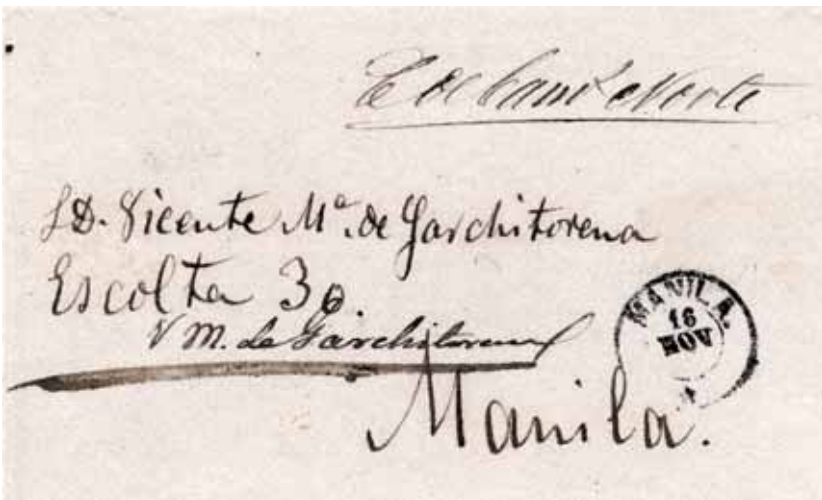 C de Cam.s Norte
S D. Vicente M.a de Garchitorena
Escolta 30.
V M. de Garchitorena
MANILA.
16
NOV
Manila.